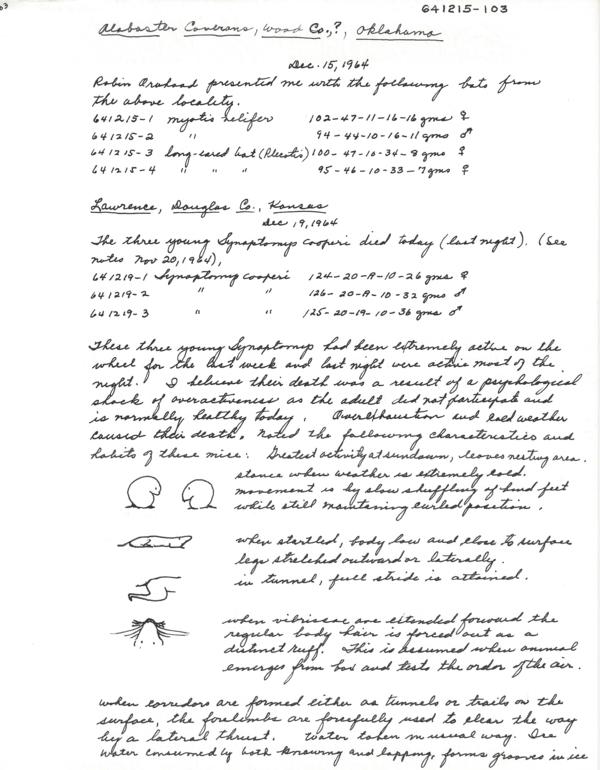 03
641215-103
Alabaster Caverns, Wood Co.,?, Oklahoma
Dec. 15, 1964
Robin presented me with the following bats from
the above locality.
641215-1 myotis velifer 102-47-11-16-16 gms ♀
641215-2 " 94-44-10-16-11 gms ♂
641215-3 long-eared bat (Plecotis) 100-47-10-34-8 gms ♀
641215-4 " " " 95-46-10-33-7 gms ♀
Lawrence, Douglas Co., Kansas
Dec 19, 1964
The three young Synaptomys cooperi died today (last night). (See
notes Nov 20, 1964),
641219-1 Synaptomy cooperi 124-20-A-10-26 gms ♀
641219-2 " " 126-20-A-10-32 gms ♂
641219-3 " " 125-20-19-10-36 gms ♂
These three young Synaptomys had been extremely active on the
wheel for the last week and last night were active most of the
night. I believe their death was a result of a psychological
shock of overactiveness as the adult did not participate and
is normally healthy today. Overexhaustion and cold weather
caused their death. Noted the following characteristics and
habits of these mice: Greatest activity at sundown, leaves nesting area.
stance when weather is extremely cold.
movement is by slow shuffling of hind feet
while still maintaining curled position.
when startled, body low and close to surface
legs stretched outward or laterally.
in tunnel, full stride is attained.
when vibrissae are extended forward the
regular body hair is forced out as a
distinct ruff. This is assumed when animal
emerges from box and tests the odor of the air.
when corridors are formed either as tunnels or trails on the
surface, the forelimbs are forcefully used to clear the way
by a lateral thrust. Water taken in usual way. Ice
water consumed by both knawing and lapping. forms grooves in ice